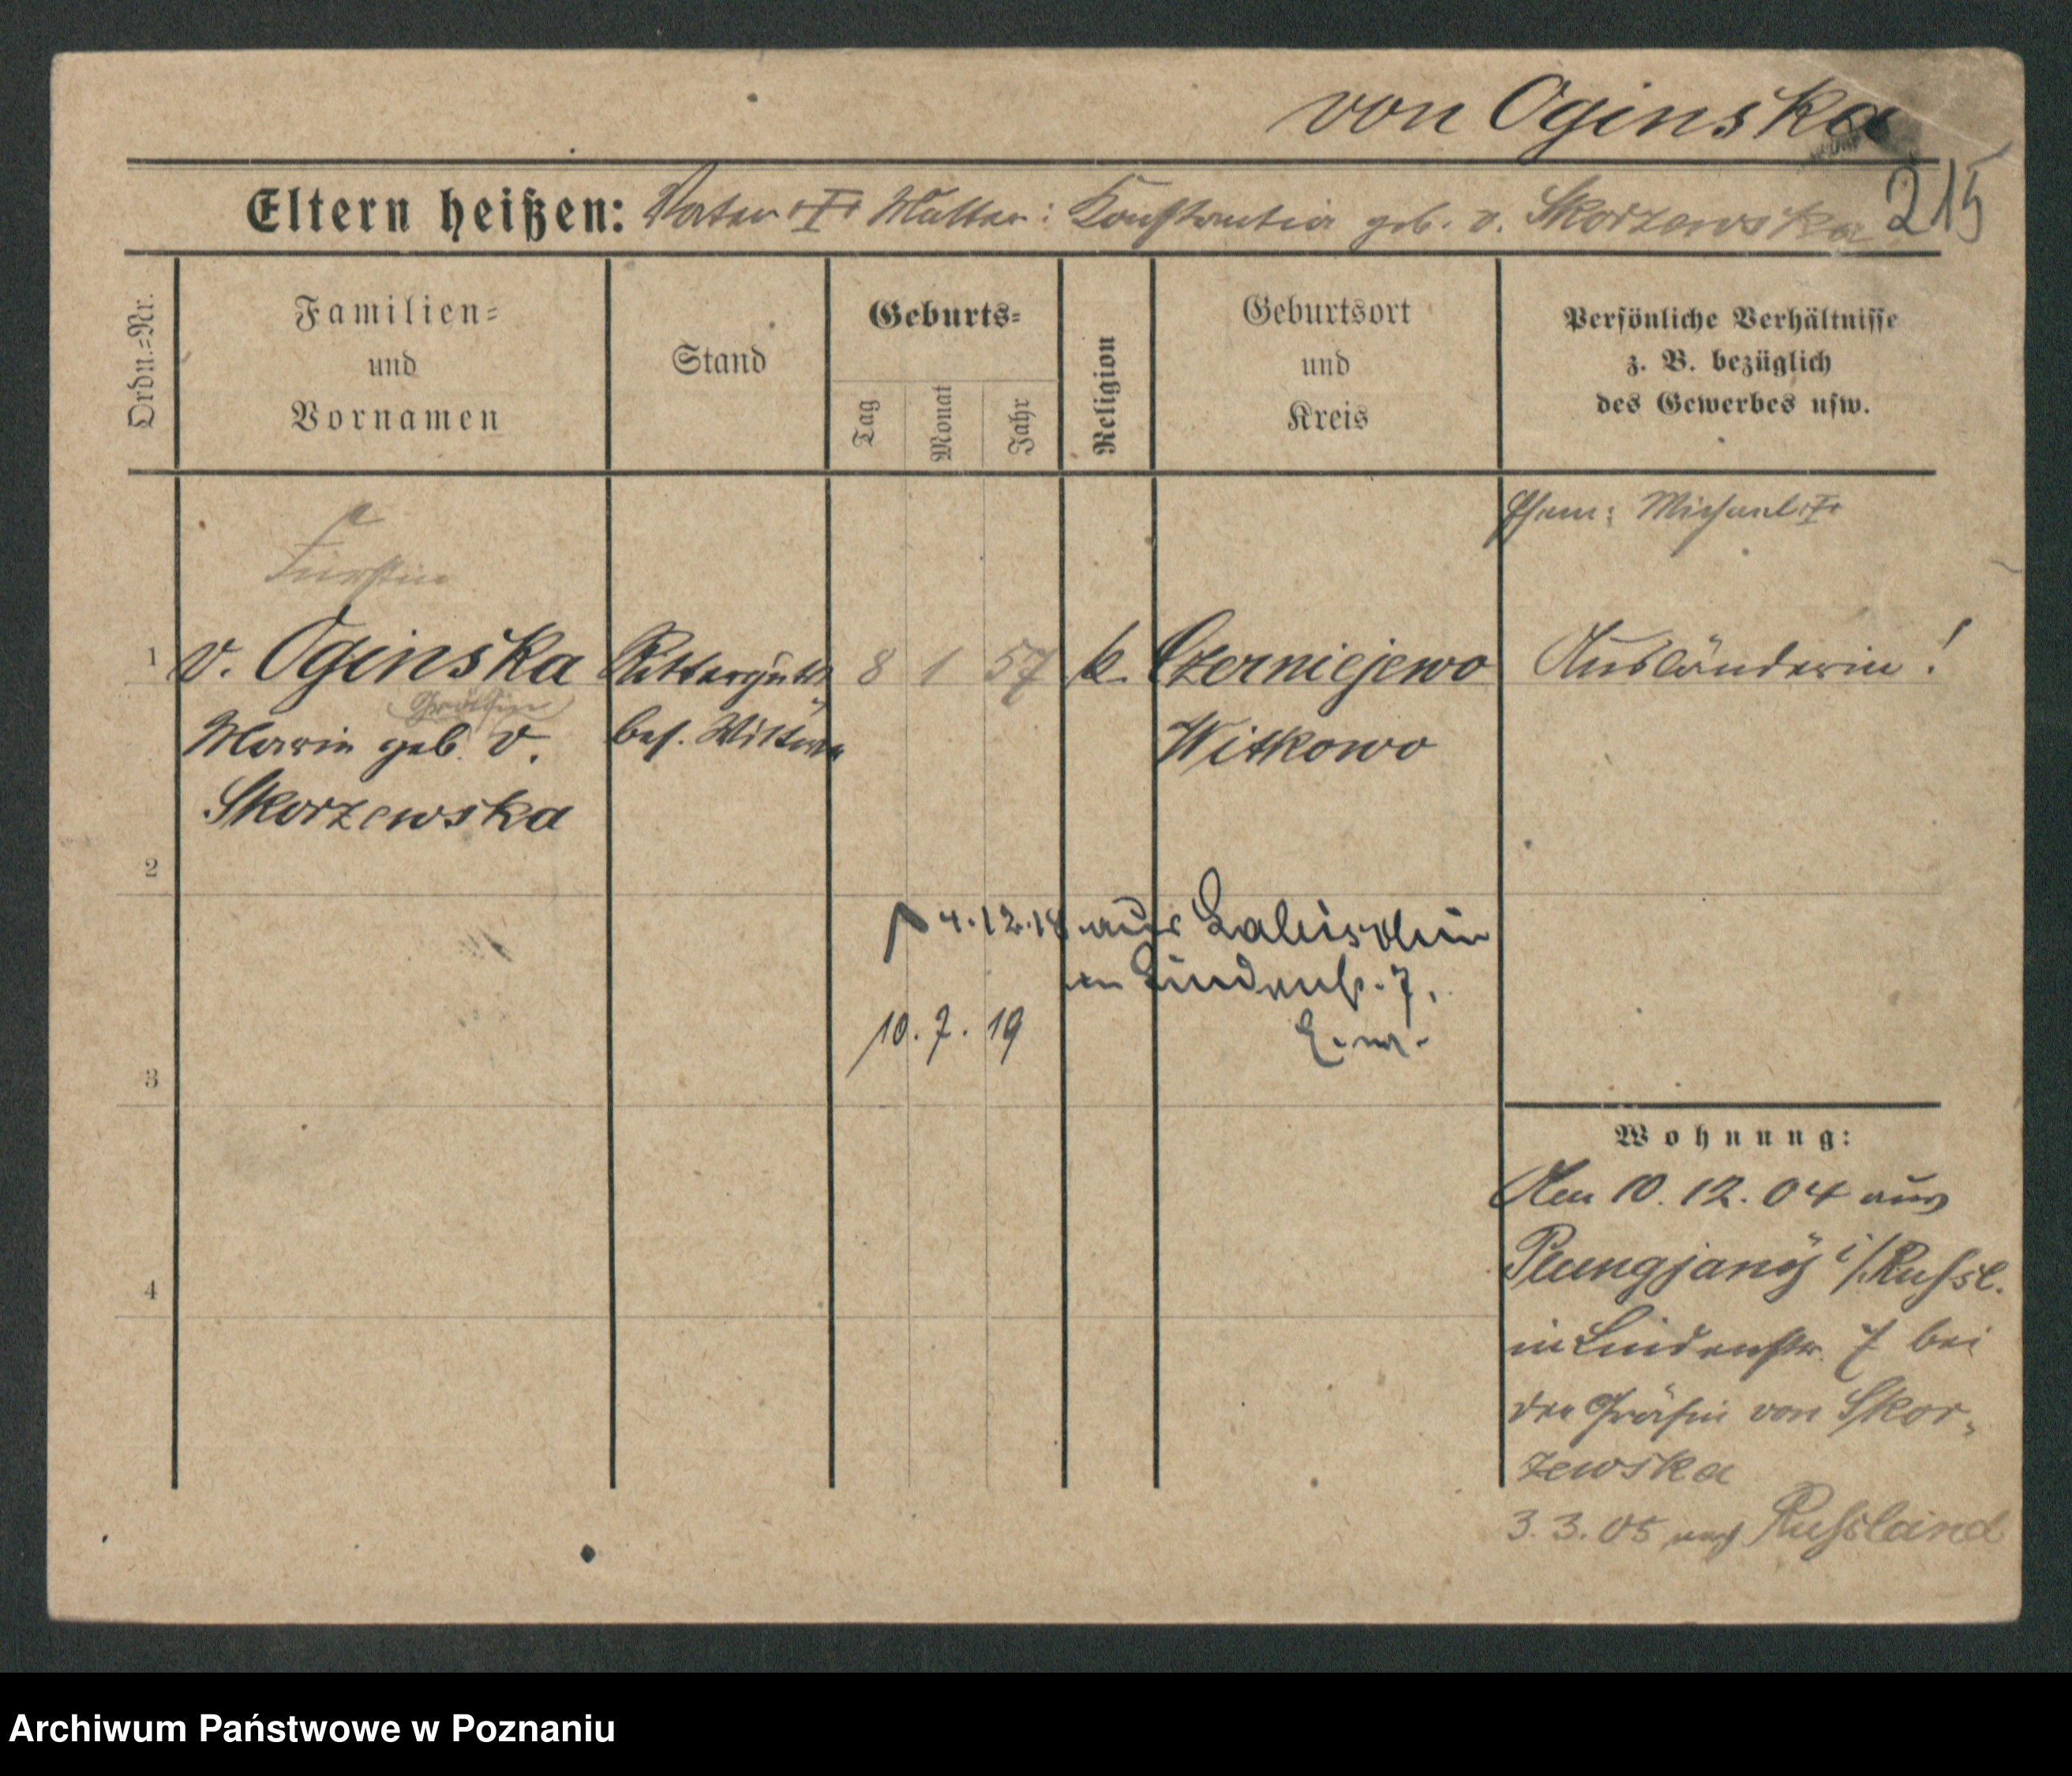 von Oginska
Eltern heißen: Vater † Mutter: Konstantia geb. v. Skorzewska 215
Ordn.=Nr.
Familien=
und
Vornamen
Stand
Geburts=
Tag
Monat
Jahr
Religion
Geburtsort
und
Kreis
Persönliche Verhältnisse
z. B. bezüglich
des Gewerbes usw.
Ehem: Michael †
Fürstin
1 v. Oginska Rittergüts 8 1 57 k. Czerniejewo Ausländerin!
(Gräfin)
Marie geb. v. bes. Witwe Witkowo
Skorzewska
2
4.12.18 aus
in Lindenstr. 7.
10. 7. 19
3
Wohnung:
Am 10. 12. 04 aus
Plungjany i/Russl.
in Lindenstr. 7 bei
der Gräfin von Skor-
zewska
4
3. 3. 05 nach Russland
Archiwum Państwowe w Poznaniu